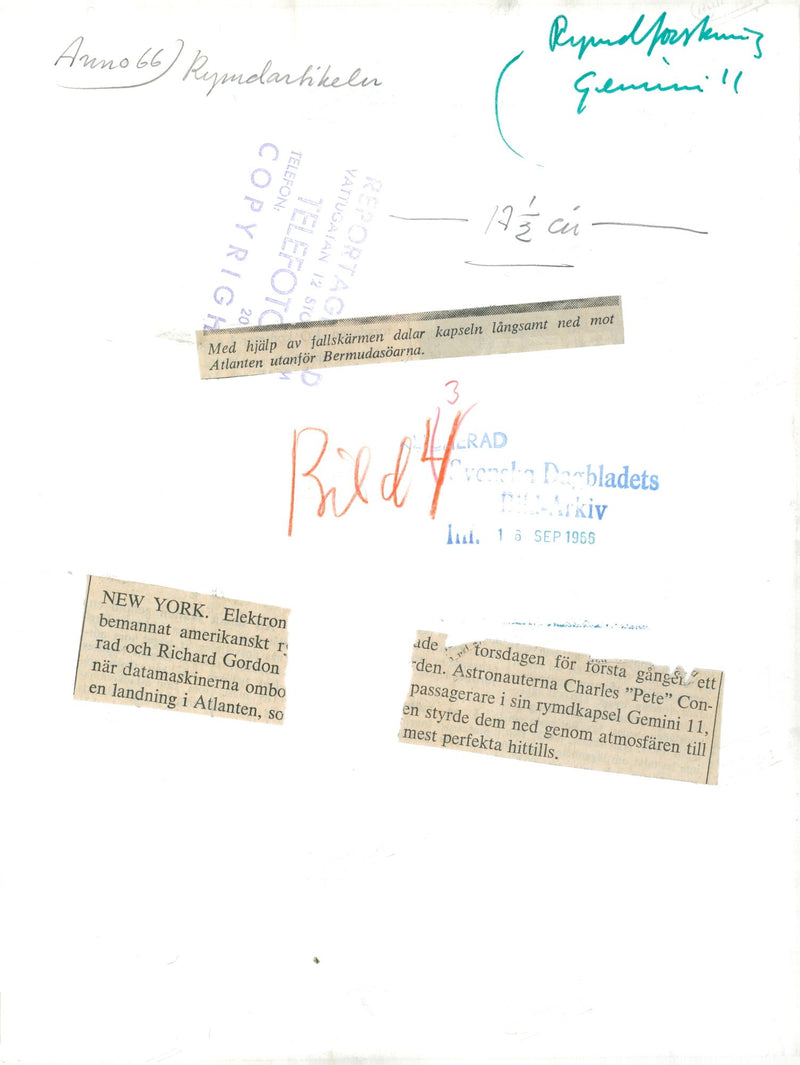 Anno 66) Rymdartikeln
Rymdforskning
Gemini 11
REPORTAG
VATTUGATAN 12 STO
TELEFOTO
TELEFON:
20
COPYRIGH
17 1/2
Med hjälp av fallskärmen dalar kapseln långsamt ned mot
Atlanten utanför Bermudasöarna.
3
Bild 4
ERAD
Svenska Dagbladets
Bild-Arkiv
Inl. 16 SEP 1966
NEW YORK. Elektron
bemannat amerikanskt r
rad och Richard Gordon
när datamaskinerna ombo
en landning i Atlanten, so
ade torsdagen för första gången ett
rden. Astronauterna Charles ”Pete” Con-
passagerare i sin rymdkapsel Gemini 11,
en styrde dem ned genom atmosfären till
mest perfekta hittills.